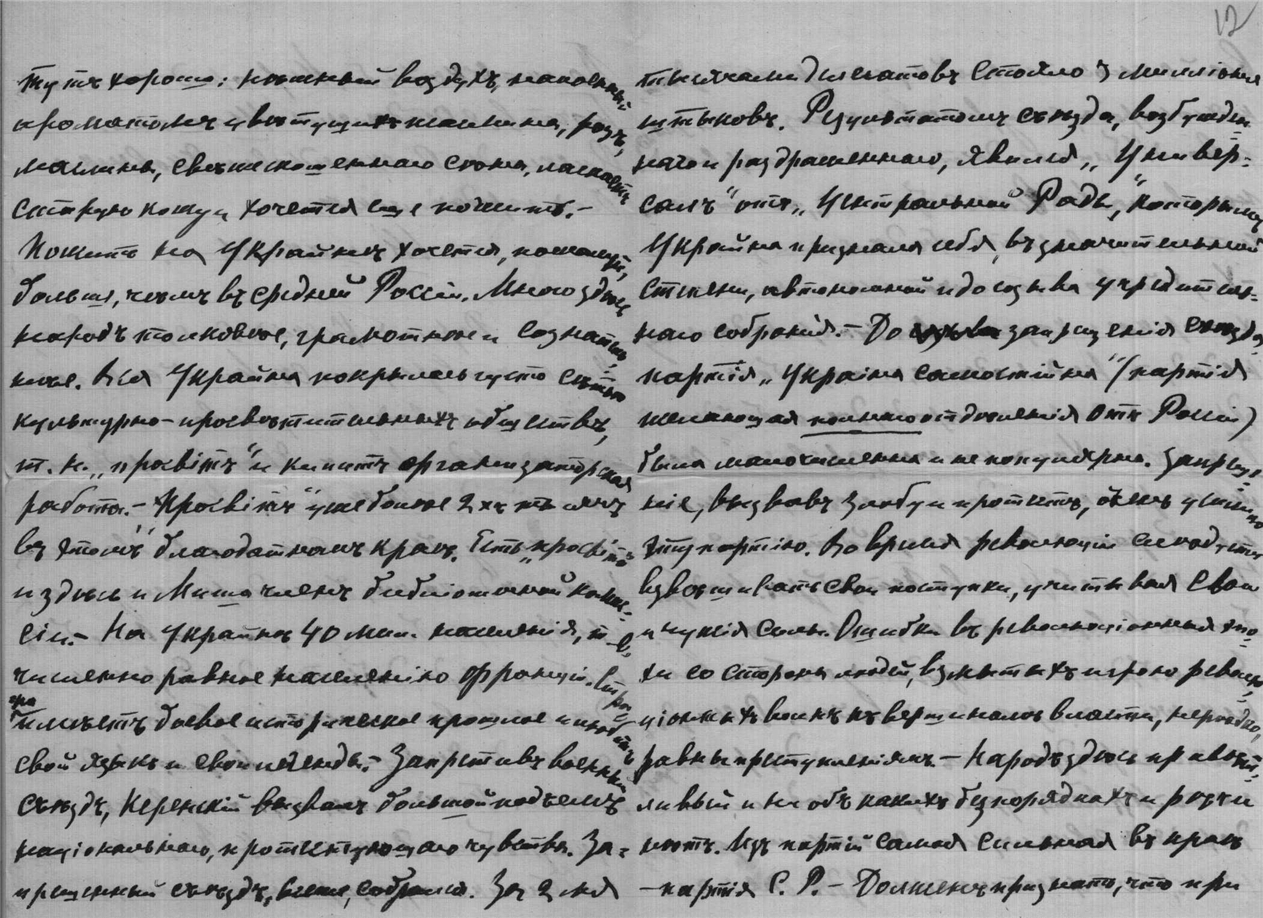 12
тутъ хорошо: нѣжный воздухъ, напоенный
ароматомъ цвѣтущихъ жасмина, розъ,
маслины, свѣже скошеннаго сѣна, ласкаетъ
сытную кожу и хочется еще пожить.-
Пожить на Украйнѣ хочется, пожалуй,
больше, чѣмъ въ средней Россіи. Много здѣсь
народъ толковѣе, грамотнѣе и сознатель-
нѣе. Вся Украйна покрылась густо сѣтью
культурно-просвѣтительныхъ обществъ,
т. н. „просвітъ" и кипитъ организаторская
работа.- „Просвітъ" уже болѣе 2хъ тысячъ
въ этомъ благодатномъ краѣ. Есть „просвіта"
и здѣсь и Миша членъ библіотечной комис-
сіи.- На Украйнѣ 40 мил. населенія, т. е.
численно равное населенію Франціи. Страна
имѣетъ боевое историческое прошлое и любитъ
свой языкъ и свои легенды.- Запретивъ военный
съѣздъ, Керенскій вызвалъ большой подъемъ
національнаго, протестующаго чувства. За-
прещенный съѣздъ, все же, собрался. За 2 мя
тысячами делегатовъ стояло 3 милліона
штыковъ. Результатомъ съѣзда, возбужден-
наго и раздраженнаго, явился „Универ-
салъ" отъ „Центральной Рады", которымъ
Украйна признала себя, въ значительной
степени, автономной и до созыва учредитель-
наго собранія.- До запрещенія съѣзда,
партія „Україна самостійна" (партія
желающая полнаго отдѣленія отъ Россіи)
была малочисленна и не популярна. Запреще-
ніе, вызвавъ злобу и протестъ, усилило
эту партію. Во время революціи слѣдуетъ
взвѣшивать свои поступки, учитывая свои
и чужія силы. Ошибки въ революціонныя эпо-
хи со стороны людей, взмытыхъ игрою револю-
ціонныхъ волнъ къ вершинамъ власти, нерѣдко,
равны преступленіямъ.- Народъ здѣсь привѣт-
ливый и ни объ какихъ безпорядкахъ и рѣчи
нѣтъ. Изъ партій самая сильная въ краѣ
- партія С. Р.- Долженъ признать, что при